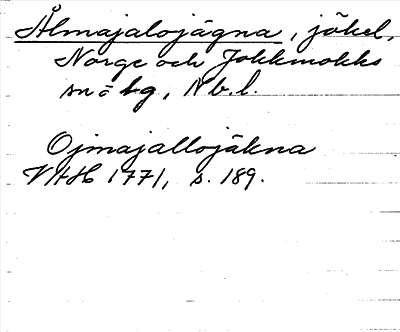 Ålmajalojägna, jökel,
Norge och Jokkmokks
sn o bg, Nb.l.
Ojmajallojäkna
VAH 1771, s. 189.